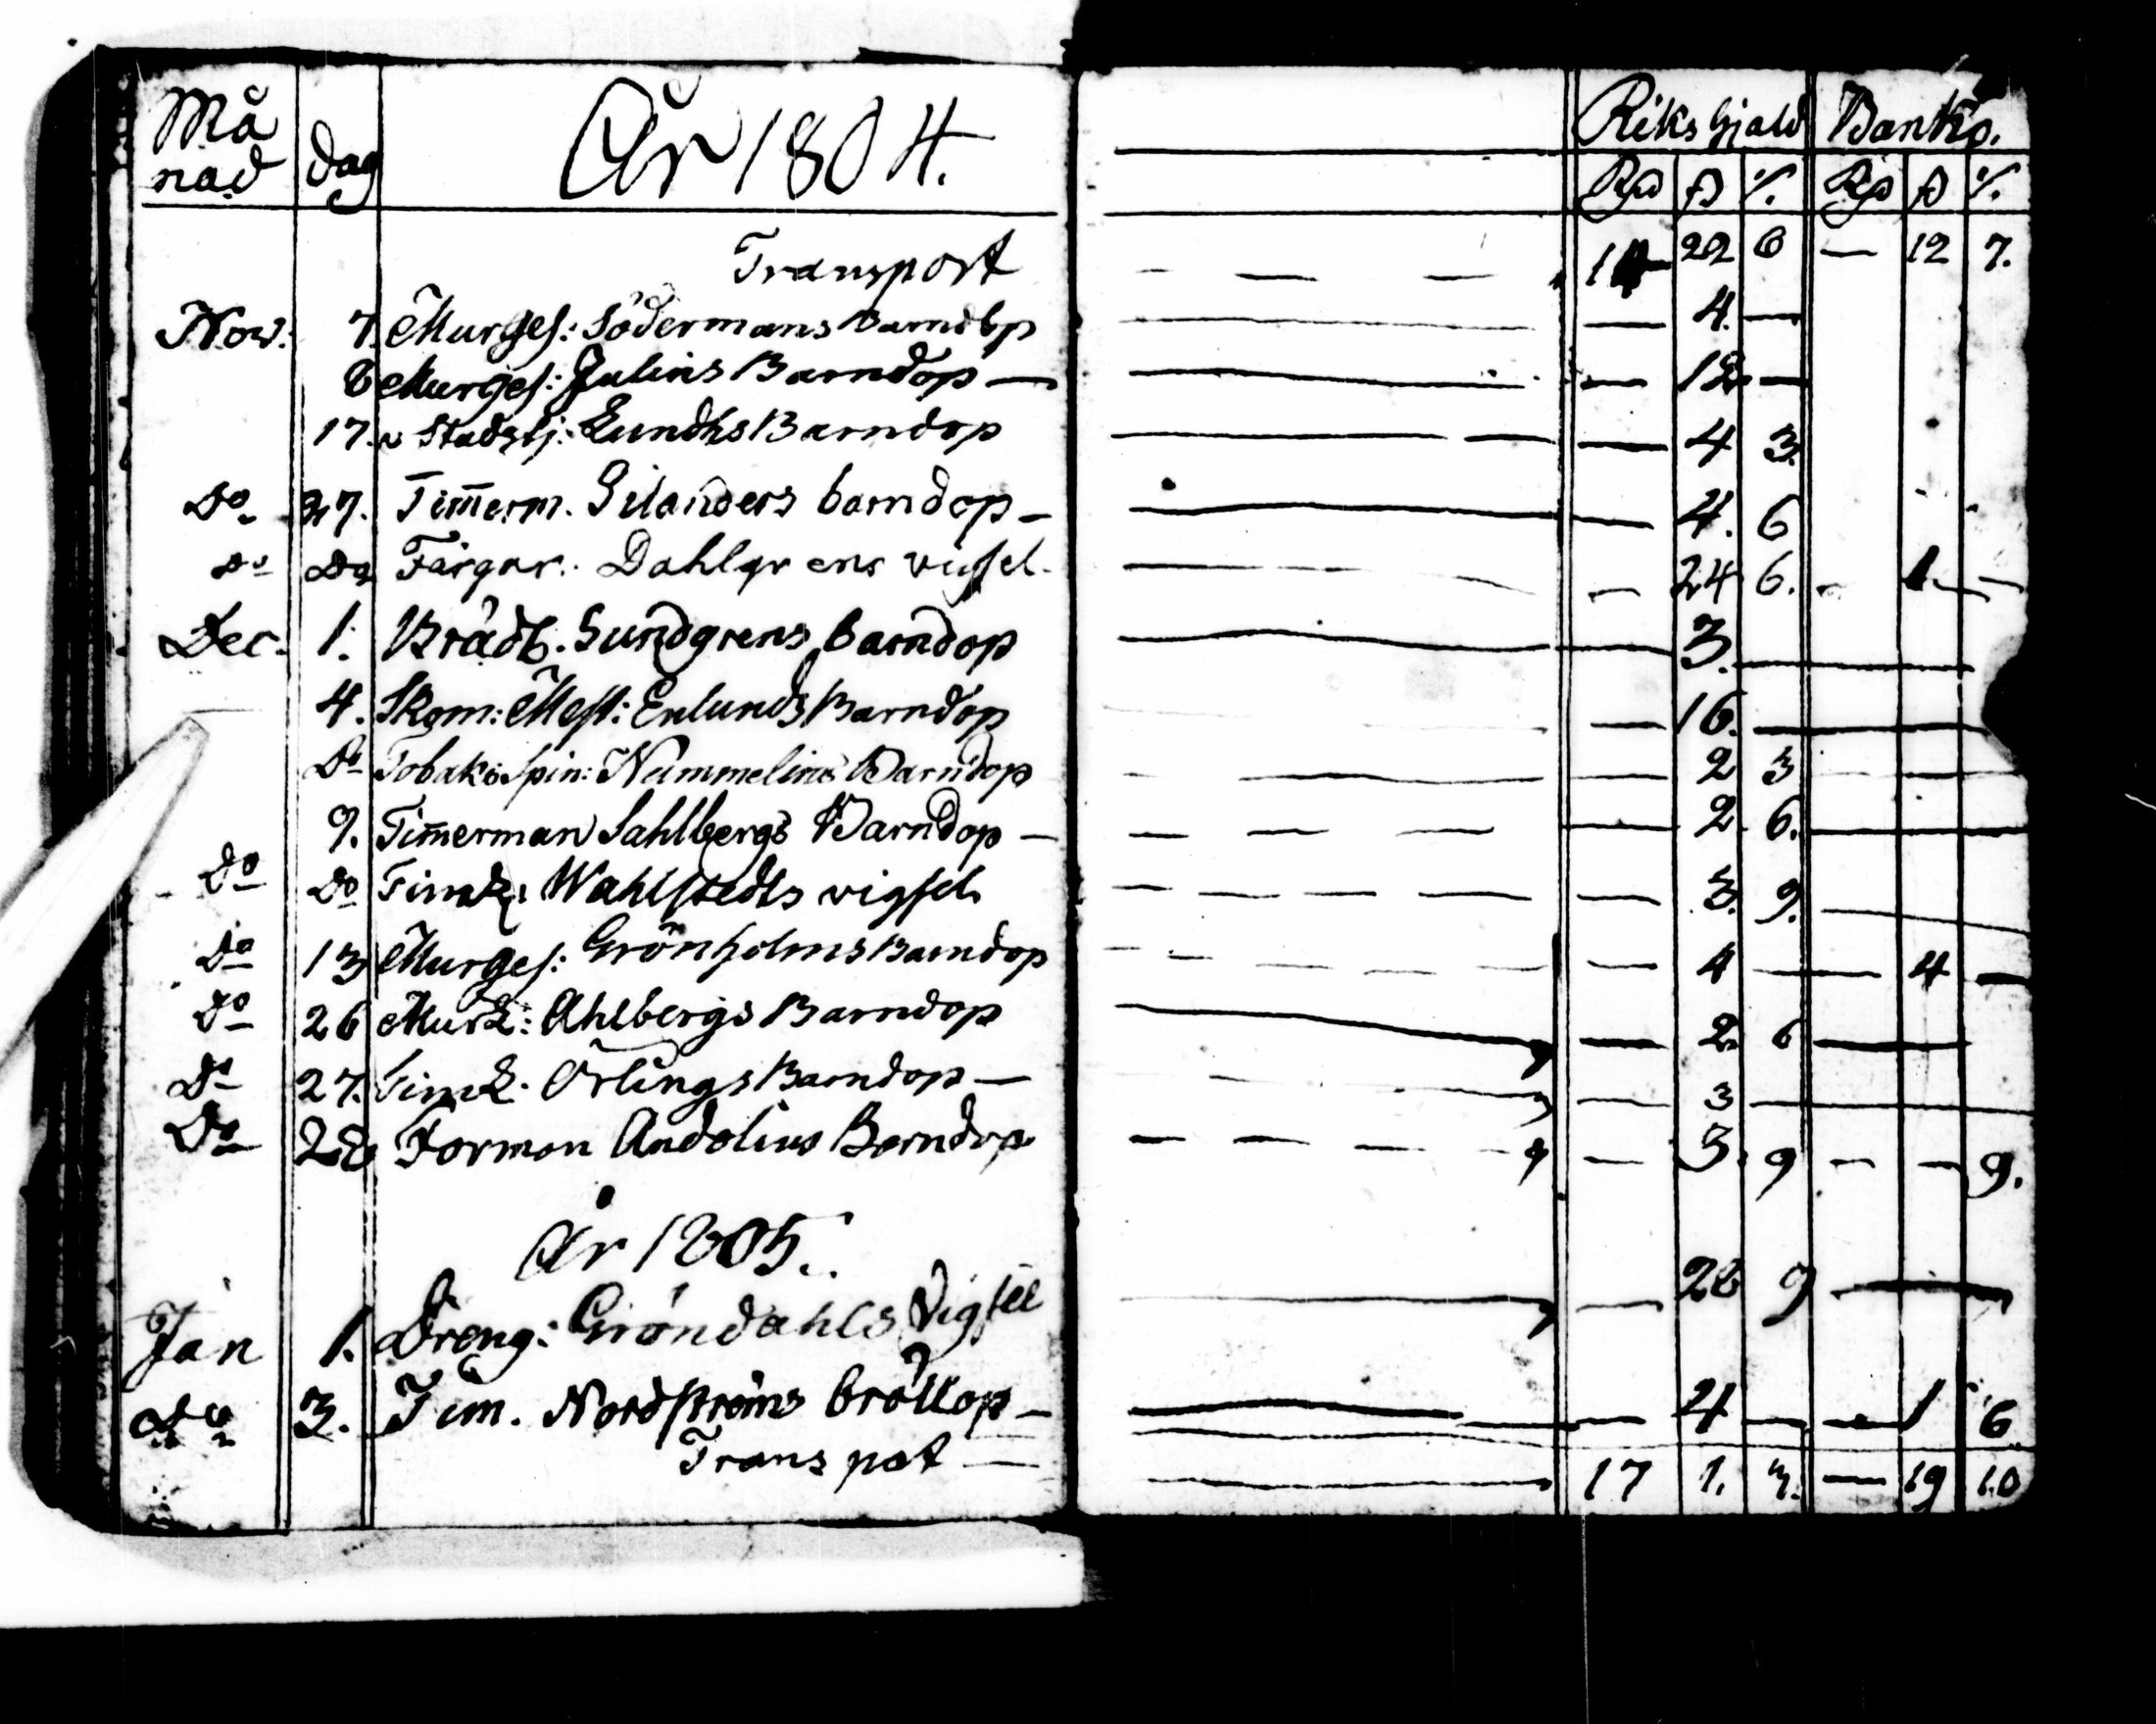 Må
nad dag År 1804. Riksgjald Banko.
Rd ß /. Rd ß /.
Transport — — — 14 22 6 — 12 7.
Nov. 7. Murges: Södermans Barndop — — 4. —
8 Murges: Julins Barndop — — — 12. —
17. Stadstj: Lundhs Barndop — — — 4 3.
Do 27. Timerm. Silanders barndop — — — 4. 6
Do Do Färgar. Dahlgrens vigsel. — — 24 6. — 1. —
Dec. 1. Brädb. Sundgrens barndop — — 3. —
4. Skom: Mest: Enlunds Barndop — 16. —
Do Tobaks Spin: Nummelins Barndop — — — 2 3
9. Timerman Sahlbergs Barndop — — — — — 2. 6. —
Do Do Wahlstedts vigsel — — — — — 3. 9. —
Do 13 Murges: Grönholms Barndop — — — — — — 4 — — 4 —
Do 26 Murk: Ahlbergs Barndop — — 2. 6 —
Do 27. Timk. Örlings Barndop — — — 3 —
Do 28 Forman Andelius Barndop — — — — — 3. 9 — — 9.
År 1805.
Jan 1. Dreng: Gröndahls Vigsel — — 28 9 —
Do 3. Tim. Nordströms bröllop — — — 4 — — 1 6
Transpot — — 17 1. 3. — 19 10